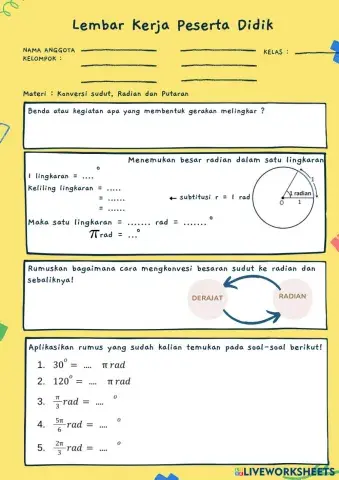 Lembar Kerja Peserta Didik
NAMA ANGGOTA
KELOMPOK :
KELAS :
Materi : Konversi sudut, Radian dan Putaran
Benda atau kegiatan apa yang membentuk gerakan melingkar ?
Menemukan besar radian dalam satu lingkaran
1 lingkaran = .... °
Keliling lingkaran = .....
= ......
= ......
← subtitusi r = 1 rad
1
1 radian
O 1
Maka satu lingkaran = ....... rad = ....... °
π rad = ...°
Rumuskan bagaimana cara mengkonvesi besaran sudut ke radian dan
sebaliknya!
DERAJAT
RADIAN
Aplikasikan rumus yang sudah kalian temukan pada soal-soal berikut!
1. 30° = .... π rad
2. 120° = .... π rad
3. π/3 rad = .... °
4. 5π/6 rad = .... °
5. 2π/3 rad = .... °
LIVEWORKSHEETS